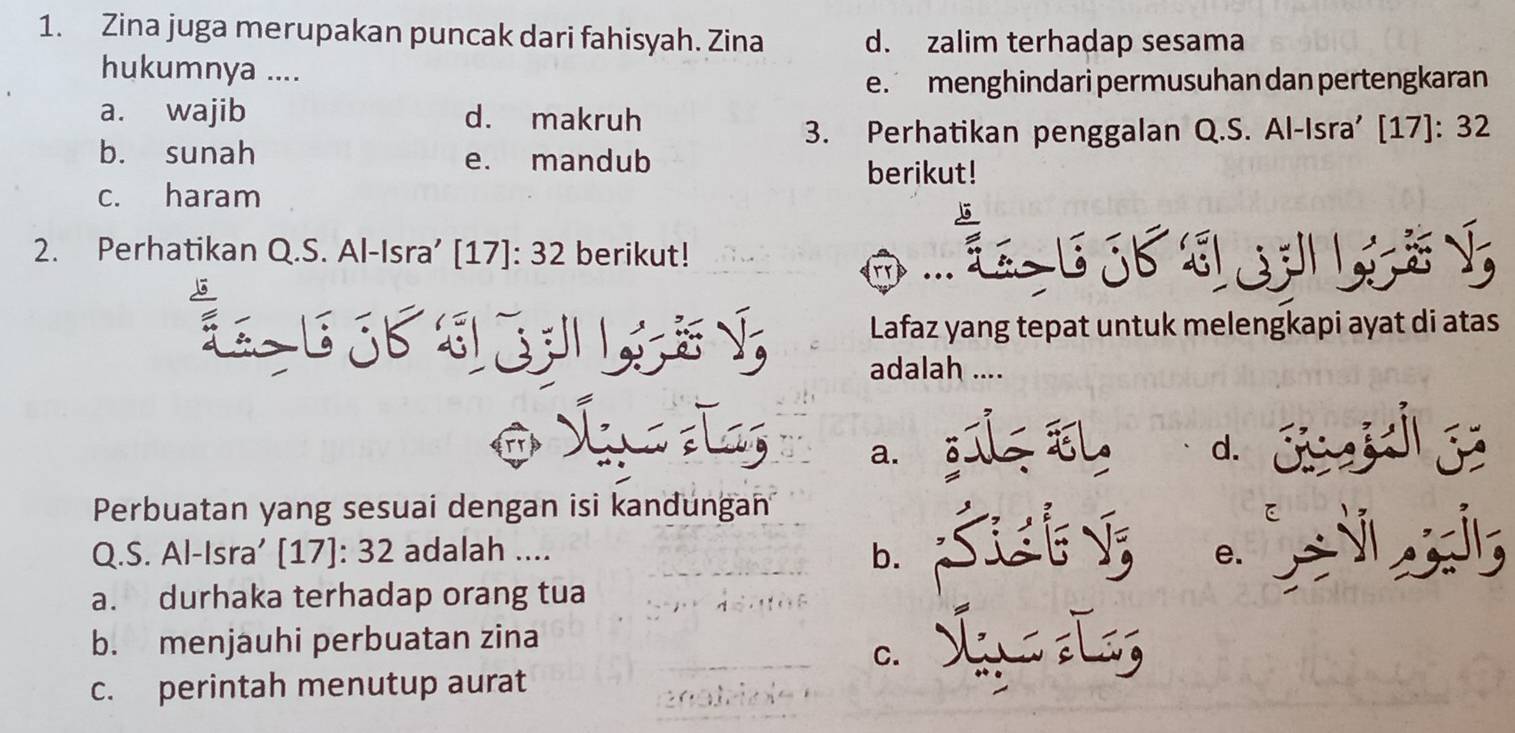 1. Zina juga merupakan puncak dari fahisyah. Zina
hukumnya ....
a. wajib
b. sunah
c. haram
d. makruh
e. mandub
2. Perhatikan Q.S. Al-Isra' [17]: 32 berikut!
وَلَا تَقْرَبُوا الزِّنٰٓى اِنَّهٗ كَانَ فَاحِشَةًۗ
وَسَاۤءَ سَبِيْلًا ﴿٣٢﴾
Perbuatan yang sesuai dengan isi kandungan
Q.S. Al-Isra' [17]: 32 adalah ....
a. durhaka terhadap orang tua
b. menjauhi perbuatan zina
c. perintah menutup aurat
d. zalim terhadap sesama
e. menghindari permusuhan dan pertengkaran
3. Perhatikan penggalan Q.S. Al-Isra' [17]: 32
berikut!
وَلَا تَقْرَبُوا الزِّنٰى اِنَّهٗ كَانَ فَاحِشَةًۗ ... ﴿٣٢﴾
Lafaz yang tepat untuk melengkapi ayat di atas
adalah ....
a. مِائَةَ جَلْدَةٍ
b. وَّلَا تَأْخُذْكُمْ
c. وَسَاۤءَ سَبِيْلًا
d. مِّنَ الْمُؤْمِنِيْنَ
e. وَالْيَوْمِ الْاٰخِرِۚ